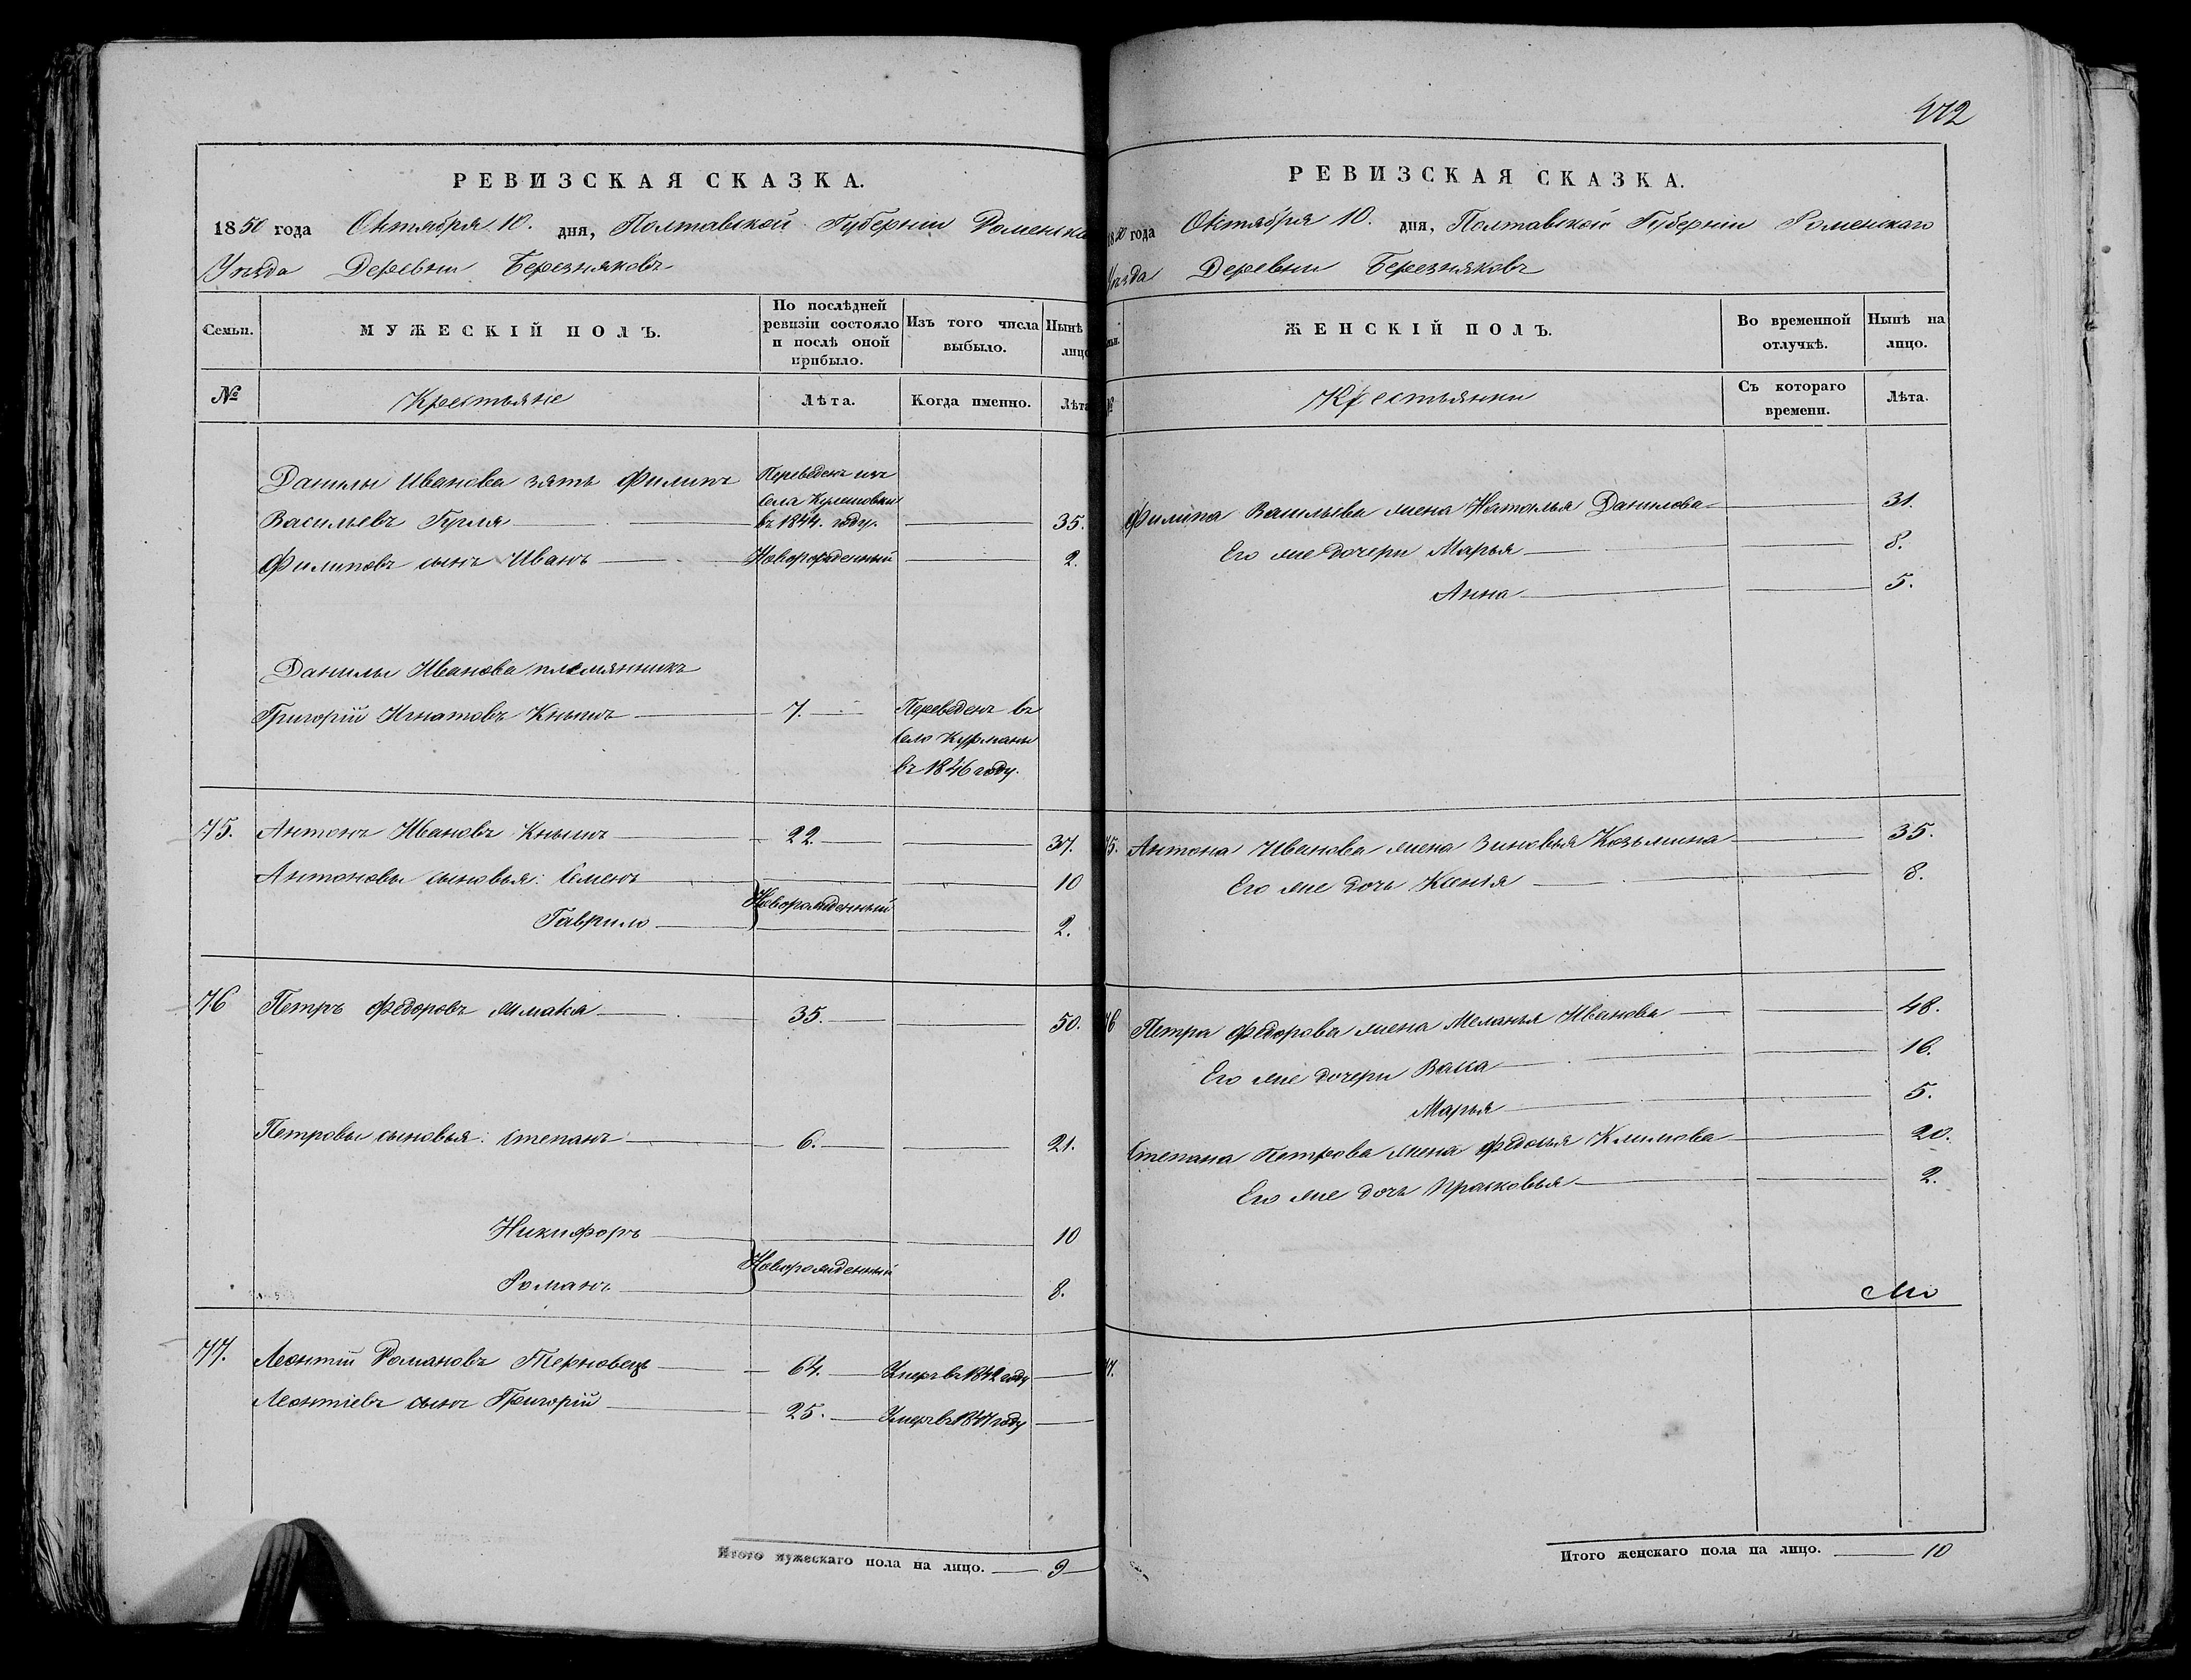 РЕВИЗСКАЯ СКАЗКА.
1850 года Октября 10. дня, Полтавской Губерніи Роменска
Уѣзда Деревни Березняковъ
Семьи.
МУЖЕСКІЙ ПОЛЪ.
По послѣдней
ревизіи состояло
и послѣ оной
прибыло.
Изъ того числа
выбыло.
Нынѣ
лицо
№
Крестьяне
Лѣта.
Когда именно.
Лѣта
Данилы Иванова зять Филипъ
Васильевъ Гурля
Переведенъ изъ
села Кулешовки
въ 1844. году.
35.
Филиповъ сынъ Иванъ
Новорожденный
2.
Данилы Иванова племянникъ
Григорій Игнатовъ Кнышъ
7.
Переведенъ въ
село Курманы
въ 1846 году.
75. Антонъ Ивановъ Кнышъ 22. 37.
Антоновы сыновья: Семенъ 10
Новорожденный
Гаврило 2.
76 Петръ Федоровъ Шмака 35. 50.
Петровы сыновья: Степанъ 6. 21.
Никифоръ 10
Новорожденный
Романъ 8.
77. Леонтій Романовъ Терновецъ 64. Умеръ въ 1842 году
Леонтіевъ сынъ Григорій 25. Умеръ въ 1847 году
Итого мужескаго пола на лицо. 9
472
РЕВИЗСКАЯ СКАЗКА.
1850 года Октября 10. дня, Полтавской Губерніи Роменскаго
Уѣзда Деревни Березняковъ
ЖЕНСКІЙ ПОЛЪ.
Во временной
отлучкѣ.
Нынѣ на
лицо.
№
Крестьянки
Съ котораго
времени.
Лѣта.
Филипа Васильева жена Наталья Данилова 31.
Его же дочери Марья 8.
Анна 5.
75. Антона Иванова жена Зиновья Козьмина 35.
Его же дочь Ксенія 8.
76 Петра Федорова жена Меланья Иванова 48.
Его же дочери Васса 16.
Марья 5.
Степана Петрова жена Федосья Климова 20.
Его же дочь Прасковья 2.
77.
Итого женскаго пола на лицо. 10